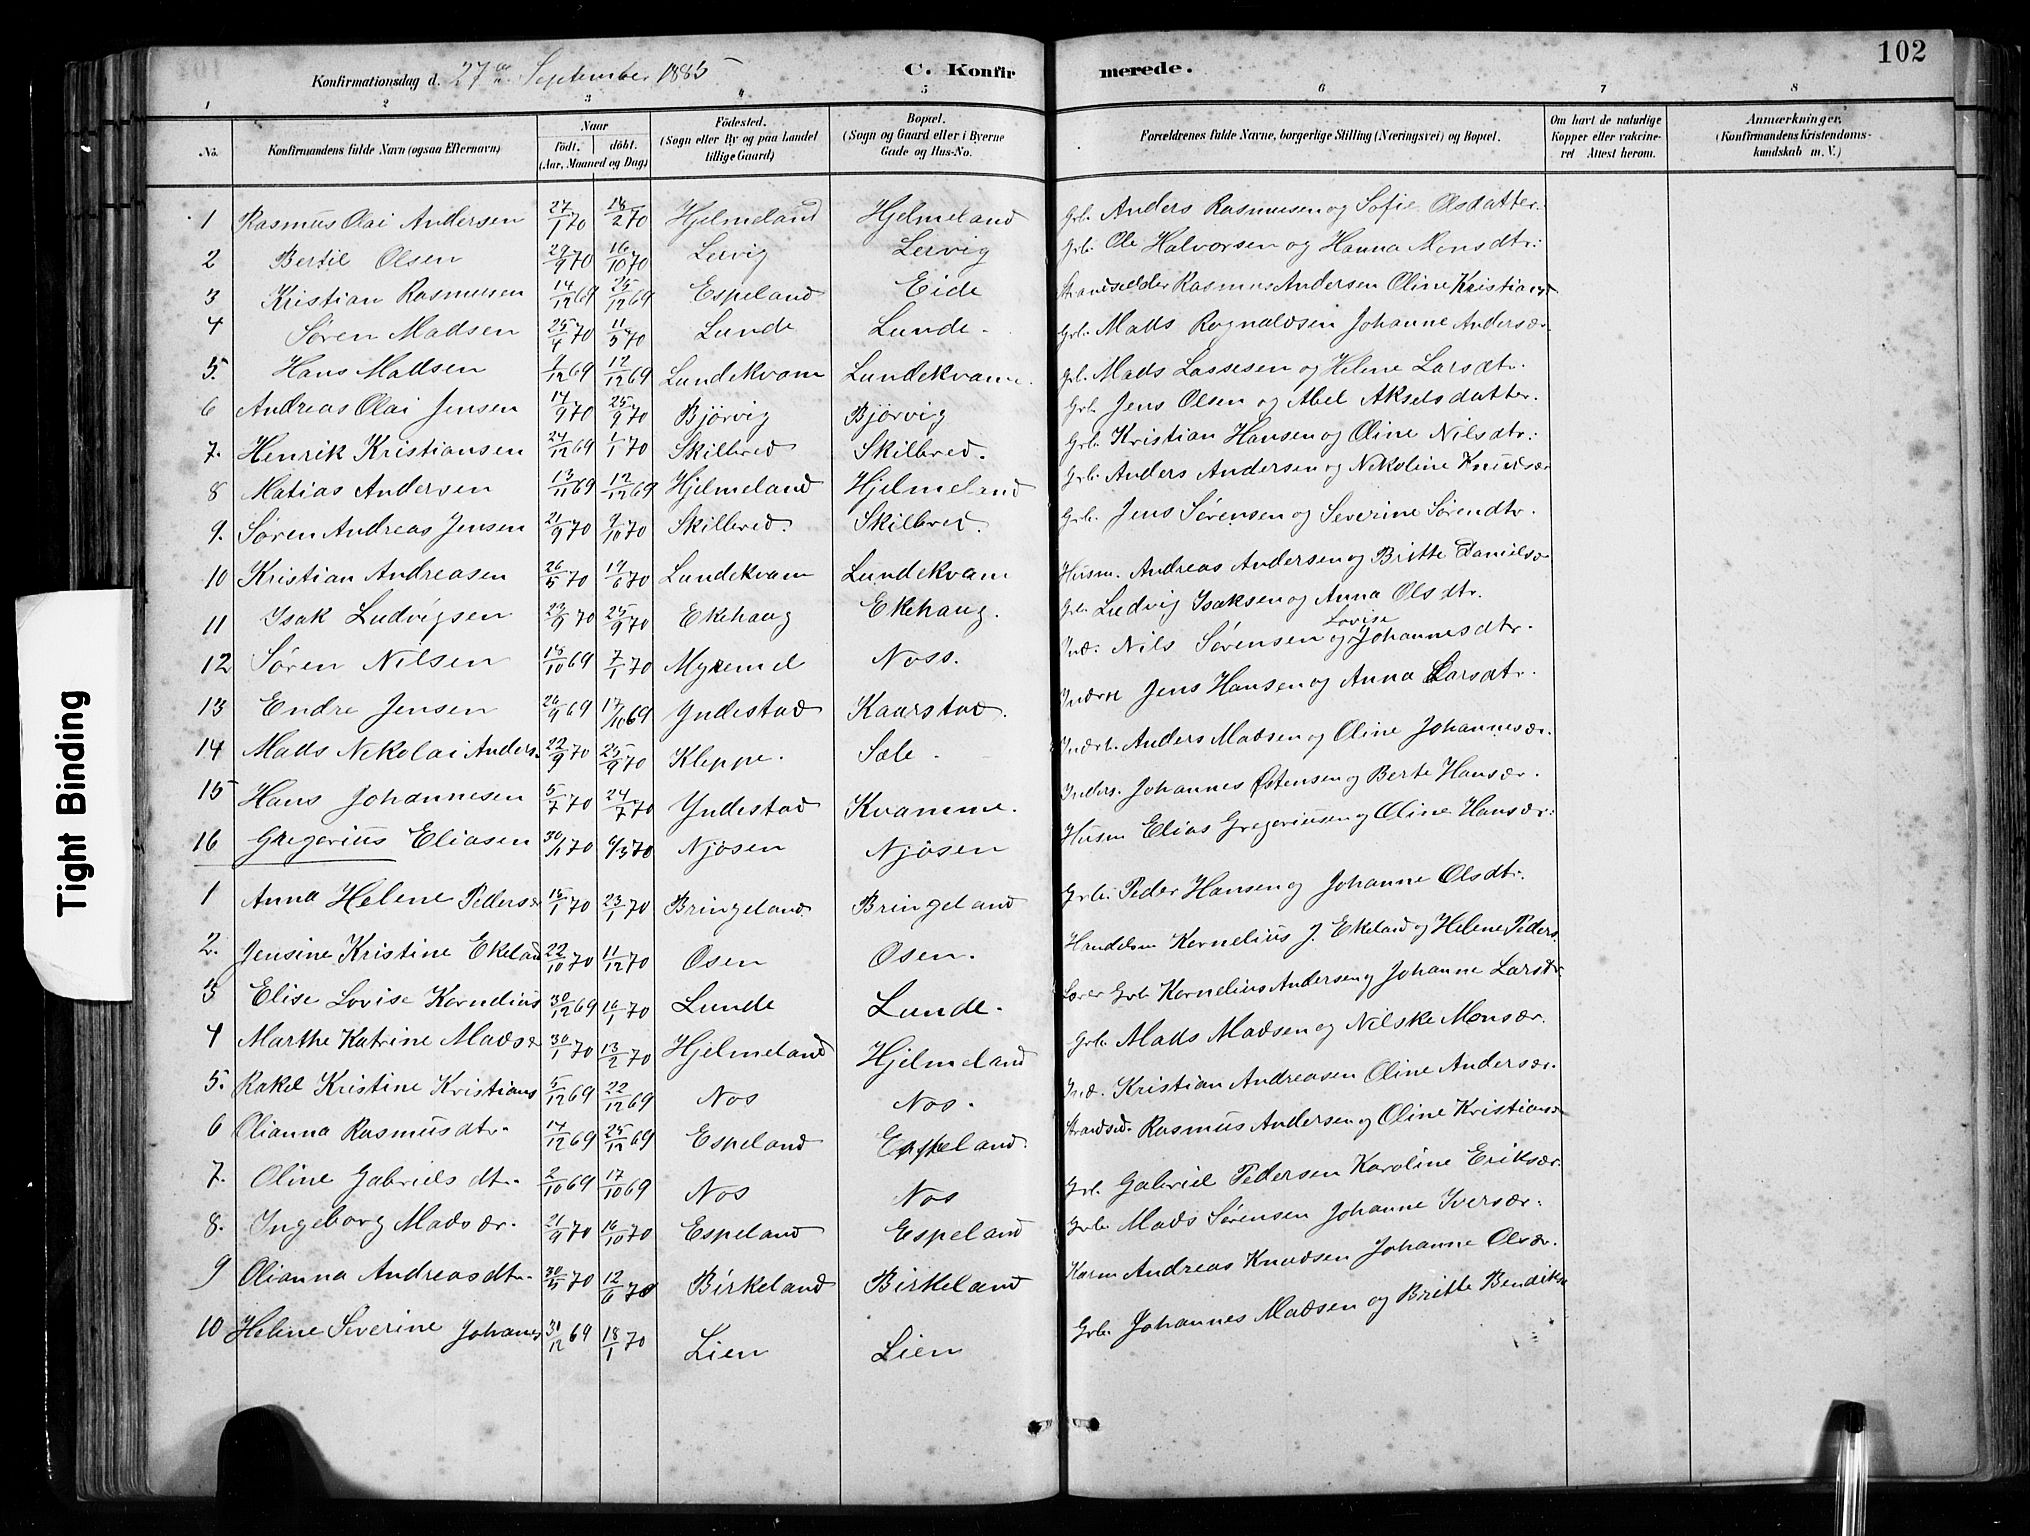 102
Konfirmationsdag d. 27de September 1885 C. Konfirmerede.
1 2 3 4 5 6 7 8
No. Konfirmandens fulde Navn (ogsaa Efternavn) Naar födt. döbt. (Aar, Maaned og Dag) Födested. (Sogn eller By og paa Landet tillige Gaard) Bopæl. (Sogn og Gaard eller i Byerne Gade og Hus-No. Forældrenes fulde Navne, borgerlige Stilling (Næringsvei) og Bopæl. Om havt de naturlige Kopper eller vakcineret Attest herom. Anmærkninger. (Konfirmandens Kristendomskundskab m. V.)
1 Rasmus Olai Andersen 27/1 70 18/2 70 Hjelmeland Hjelmeland Grb. Anders Rasmusen og Sofie Olsdatter.
2 Bertil Olsen 29/9 70 16/10 70 Lervig Lervig Grb. Ole Halvorsen og Hanna Monsdtr:
3 Kristian Rasmusen 14/12 69 25/12 69 Espeland Eide Strandsidder Rasmus Andersen Oline Kristiansd
4 Søren Madsen 25/4 70 11/5 70 Lunde Lunde. Grb. Mads Rognaldsen Johanne Andersdr.
5. Hans Madsen 1/12 69 12/12 69 Lundekvam Lundekvam. Grb. Mads Lassesen og Helene Larsdtr.
6 Andreas Olai Jensen 14/9 70 25/9 70 Bjørvig Bjørvig Grb. Jens Olsen og Abel Akselsdatter.
7. Henrik Kristiansen 24/12 69 1/1 70 Skilbred Skilbred. Grb. Kristian Hansen og Oline Nilsdtr:
8 Matias Andersen 13/11 69 12/12 69 Hjelmeland Hjelmeland Grb. Anders Andersen og Nikoline Knudsdr
9. Søren Andreas Jensen 21/9 70 9/10 70 Skilbred. Skilbred. Grb. Jens Sørensen og Severine Sørendtr.
10 Kristian Andreasen 26/5 70 17/6 70 Lundekvam Lundekvam Husm. Andreas Andersen og Britte Danielsdr
11 Isak Ludvigsen 23/9 70 25/9 70 Ekehaug Ekehaug. Grb. Ludvig Isaksen og Anna Olsdtr.
12 Søren Nilsen 15/10 69 7/1 70 Myremel Noss. Ind. Nils Sørensen og Lovise Johannesdtr.
13 Endre Jensen 26/9 69 17/10 69 Yndestad Kaarstad. Inderst Jens Hansen og Anna Larsdtr.
14 Mads Nikolai Anders. 22/9 70 25/9 70 Kleppe. Sæle. Inderst. Anders Madsen og Oline Johannesdr.
15 Hans Johannesen 5/7 70 24/7 70 Yndestad Kvamme. Inders. Johannes Østensen og Berte Hansdr.
16 Gregorius Eliasen 30/1 70 6/3 70 Njøsen Njøsen Husm Elias Gregoriusen og Oline Hansdr:
1 Anna Helene Pedersd 15/1 70 23/1 70 Bringeland. Bringeland Grb. Peder Hansen og Johanne Olsdtr.
2. Jensine Kristine Ekeland 22/10 70 11/12 70 Osen Osen. Handelsm Kornelius J. Ekeland og Helene Peders.
3 Elise Lovise Kornelius 30/12 69 16/1 70 Lunde Lunde. Lærer Grb. Kornelius Andersen og Johanne Larsdr.
4 Marthe Katrine Madsd 30/1 70 13/2 70 Hjelmeland Hjelmeland Grb. Mads Madsen og Nilske Monsdr.
5. Rakel Kristine Kristians 5/12 69 22/12 69 Nos Nos. Ind. Kristian Andreasen Oline Andersdr.
6 Olianna Rasmusdtr. 14/12 69 25/12 69 Espeland Espeland. Strandsid. Rasmus Andersen og Oline Kristiansd
7. Oline Gabriels dtr. 2/10 69 17/10 69 Nos Nos Grb. Gabriel Pedersen Karoline Eriksdr.
8. Ingeborg Madsdr. 21/9 70 16/10 70 Espeland Espeland Grb. Mads Sørensen Johanne Iversdr.
9 Olianna Andreasdtr. 30/5 70 12/6 70 Birkeland Birkeland Andreas Knudsen Johanne Olsdr.
10 Helene Severine Johannes 31/12 69 18/1 70 Lien Lien Grb. Johannes Madsen og Britte Bendiks
Tight Binding